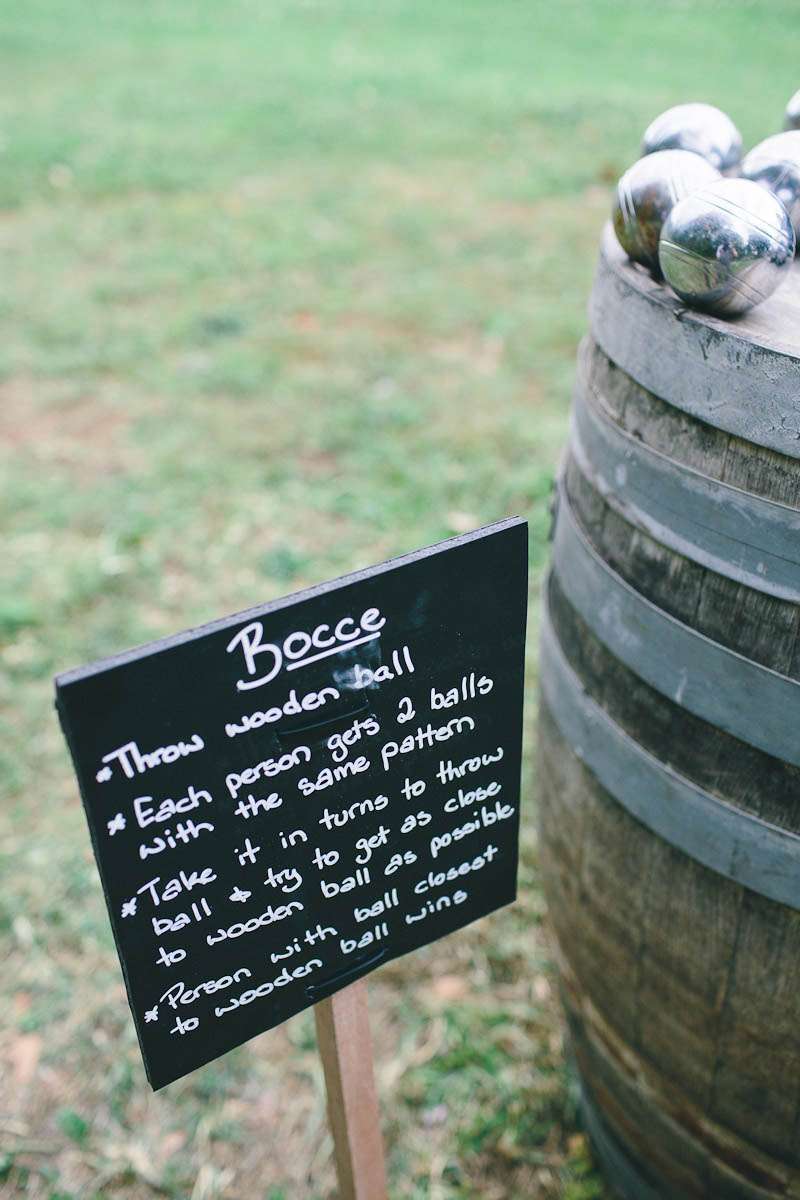 Bocce
*Throw wooden ball
* Each person gets 2 balls
with the same pattern
*Take it in turns to throw
ball & try to get as close
to wooden ball as possible
*Person with ball closest
to wooden ball wins